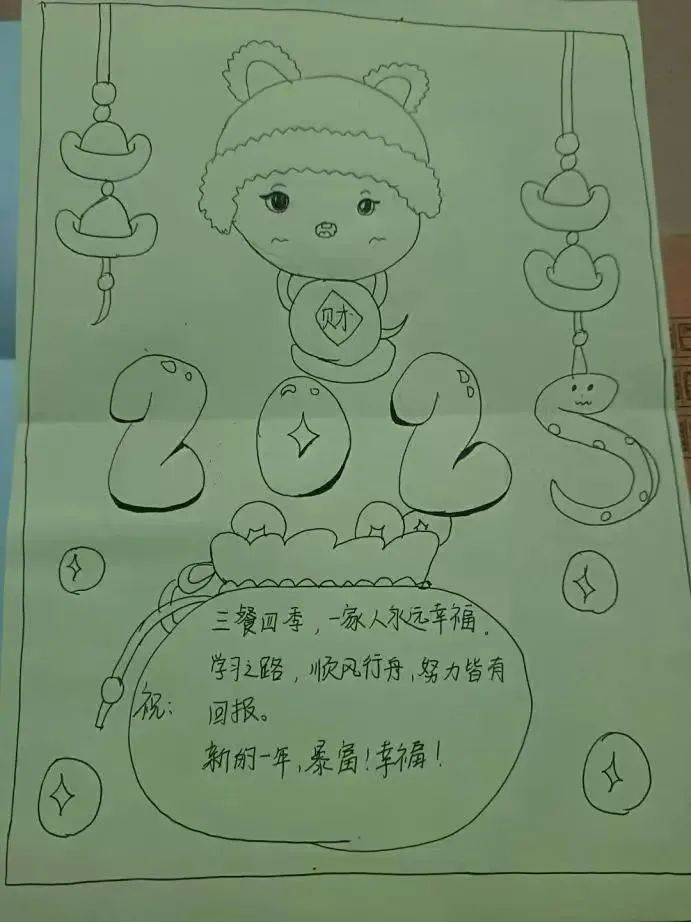 财
2025
三餐四季，一家人永远幸福。
学习之路，顺风行舟，努力皆有
祝：回报。
新的一年，暴富！幸福！